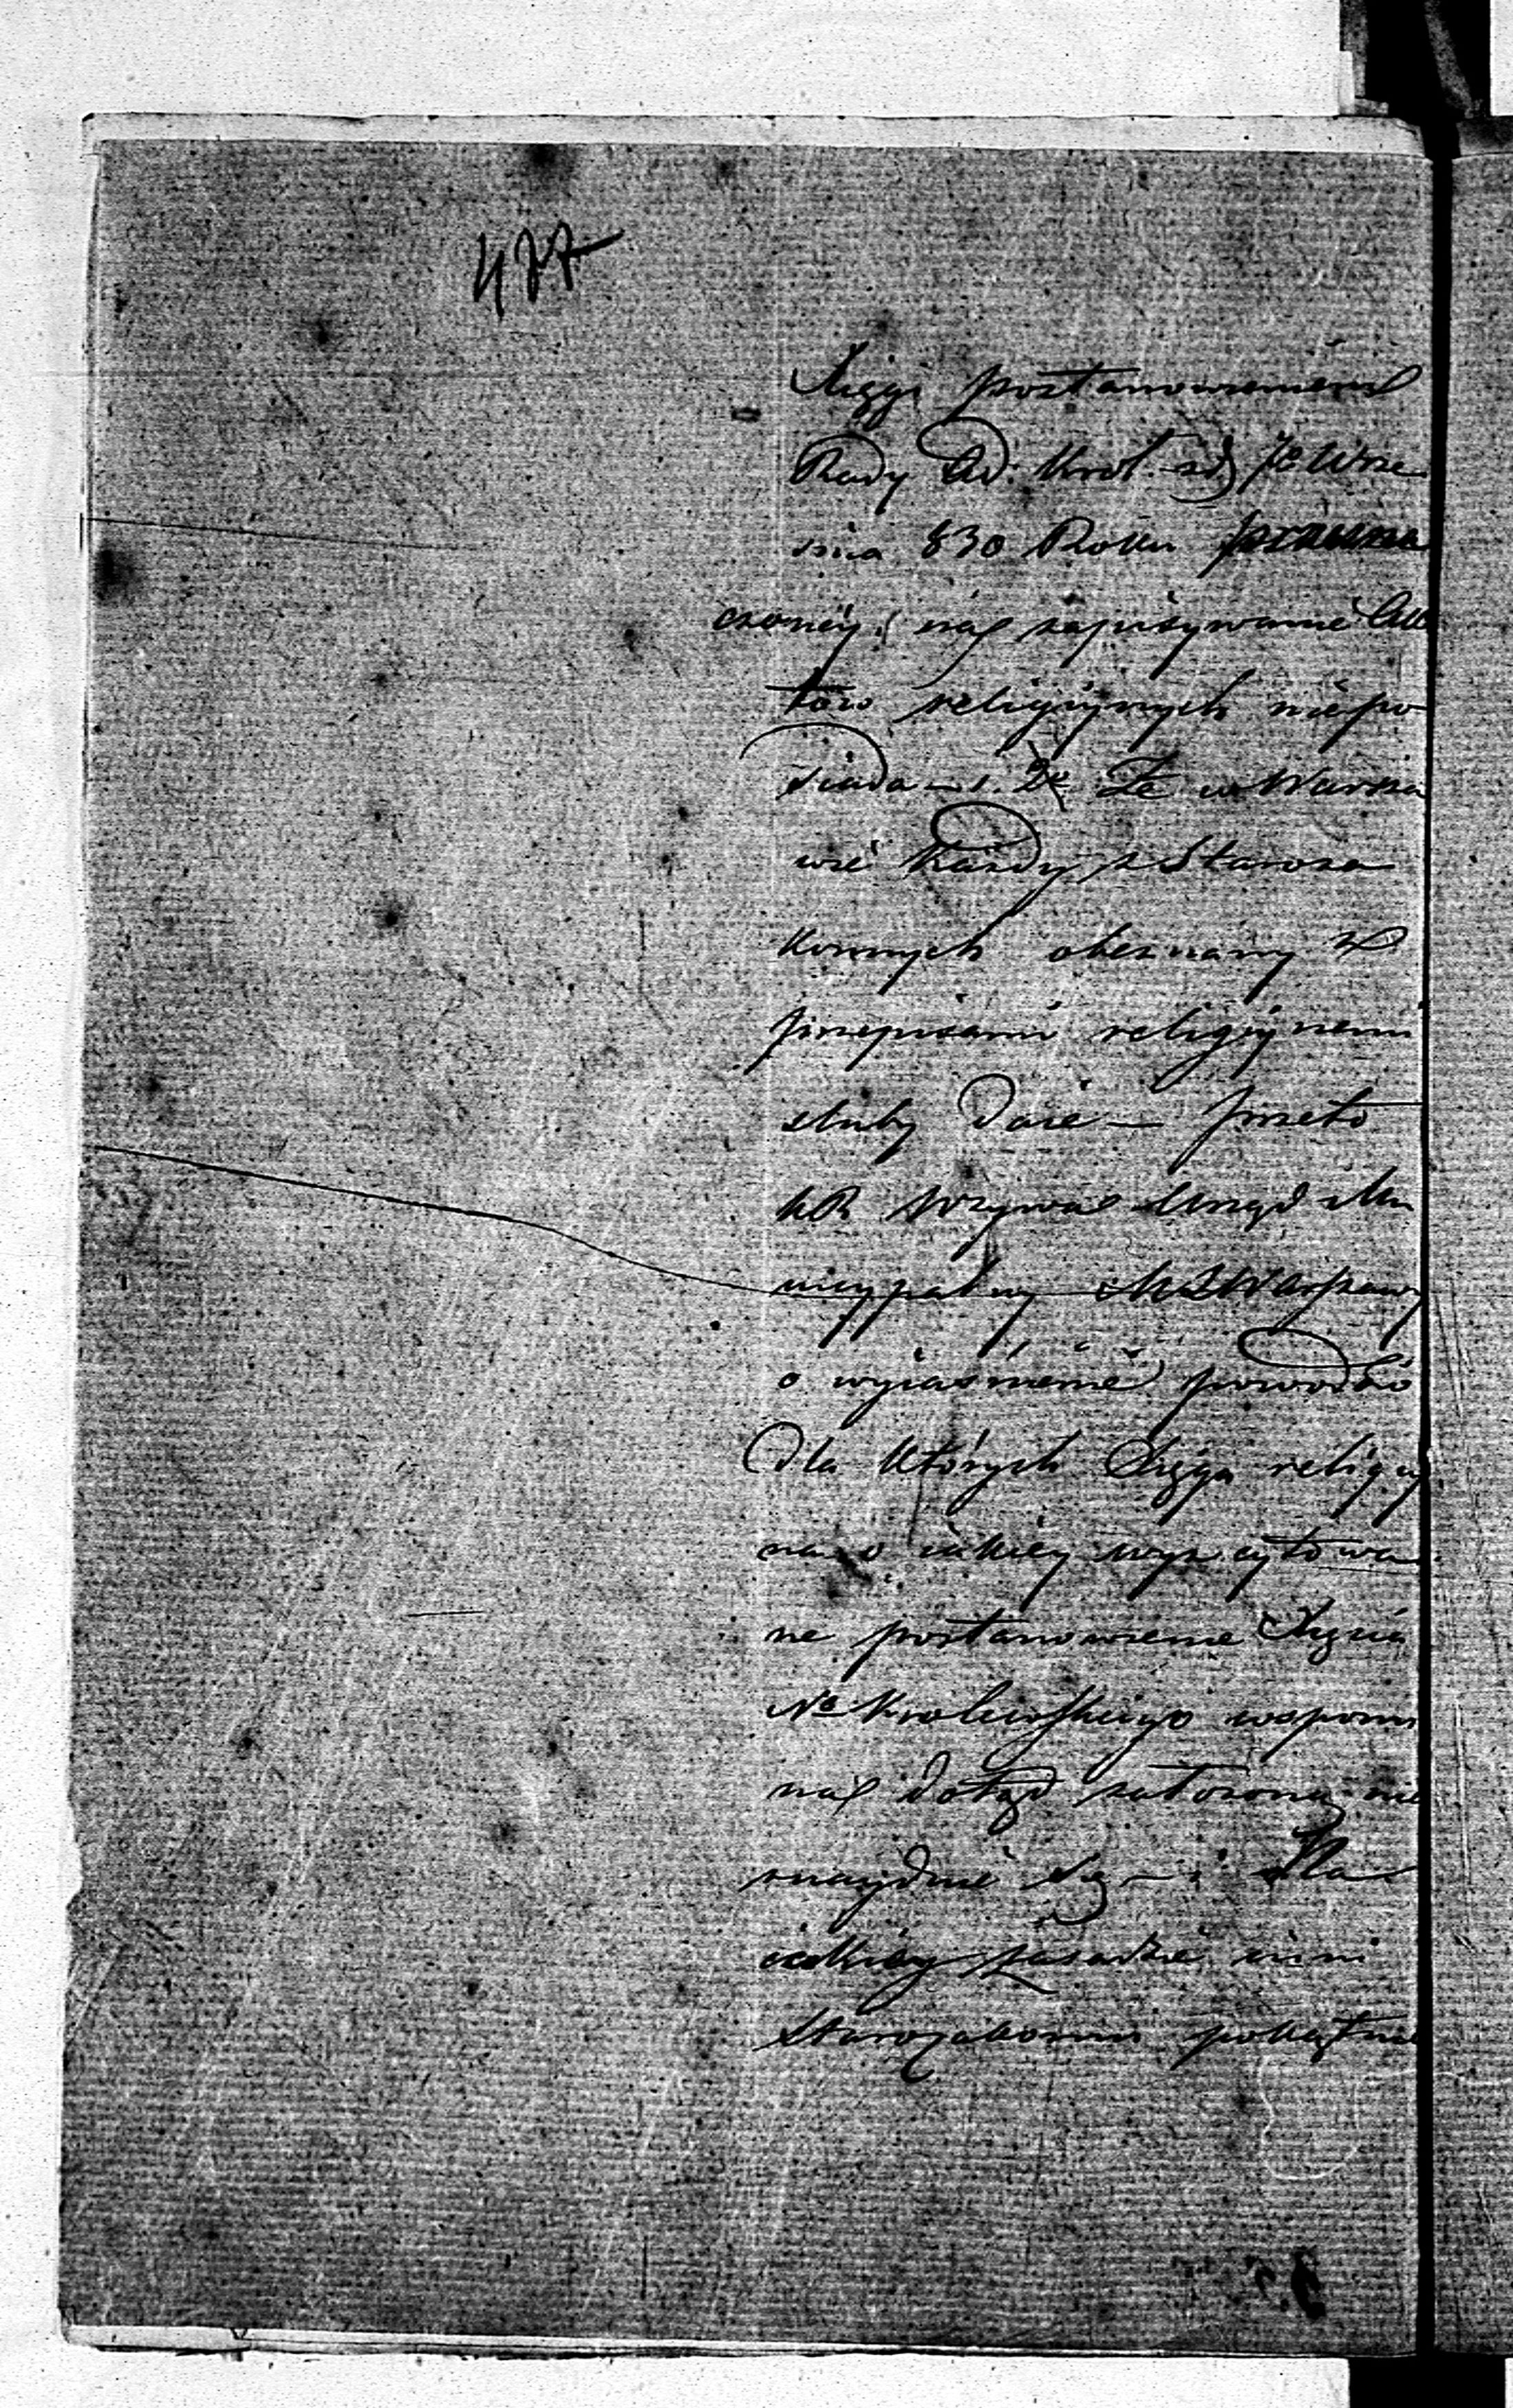 477
Xięgi postanowieniem
Rady Ad: Król. z d) 7/2 Wrze
śnia 830 Roku przezna
czonéy, na zapisywanie Ak
tów religiynych nie po
siada — i. 2e Że w Warsza
wie każdy z Staroza
konnych obeznany z
przepisami religiynemi
śluby daie — przeto
KR Wzywa Urząd Mu
nicypalny M S Warszawy
o wyiaśnienie powodów
dla których Xięga religiy
na o iakiey wyż cytowa
ne postanowienie Xięcia
Nka Królewskiego wspomi
na dotąd założona nie
znayduie się — i dla
iakiey zasadzie inni
Starozakonni pokątnie